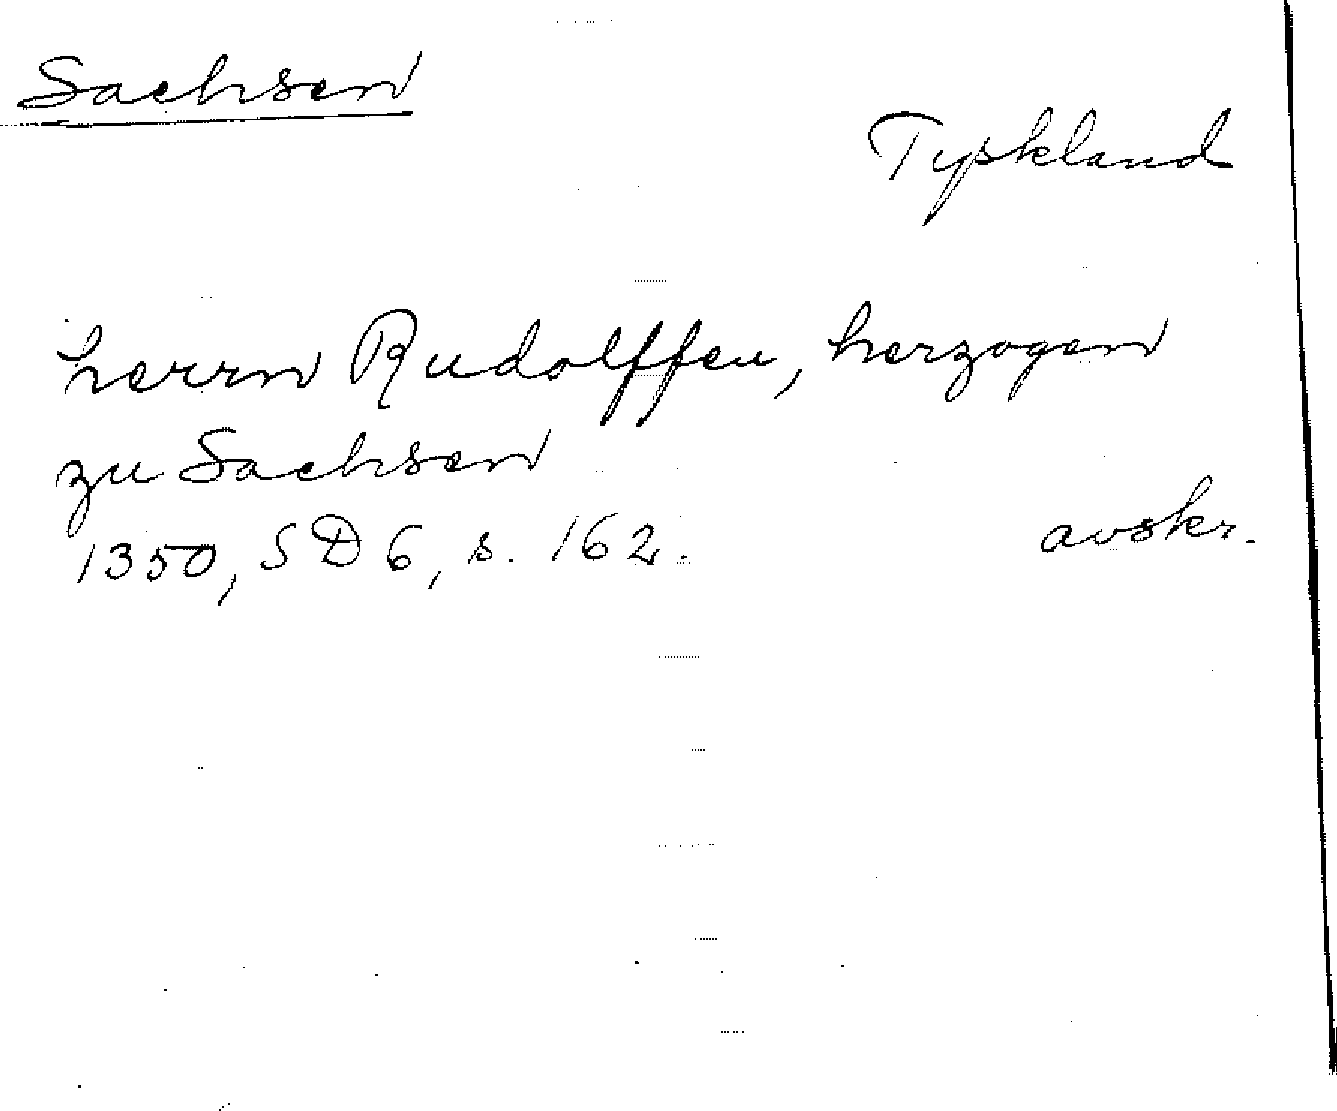 Sachsen
Tyskland
herrn Rudolffen, herzogen
zu Sachsen
1350, SD 6, s. 162.
avskr.